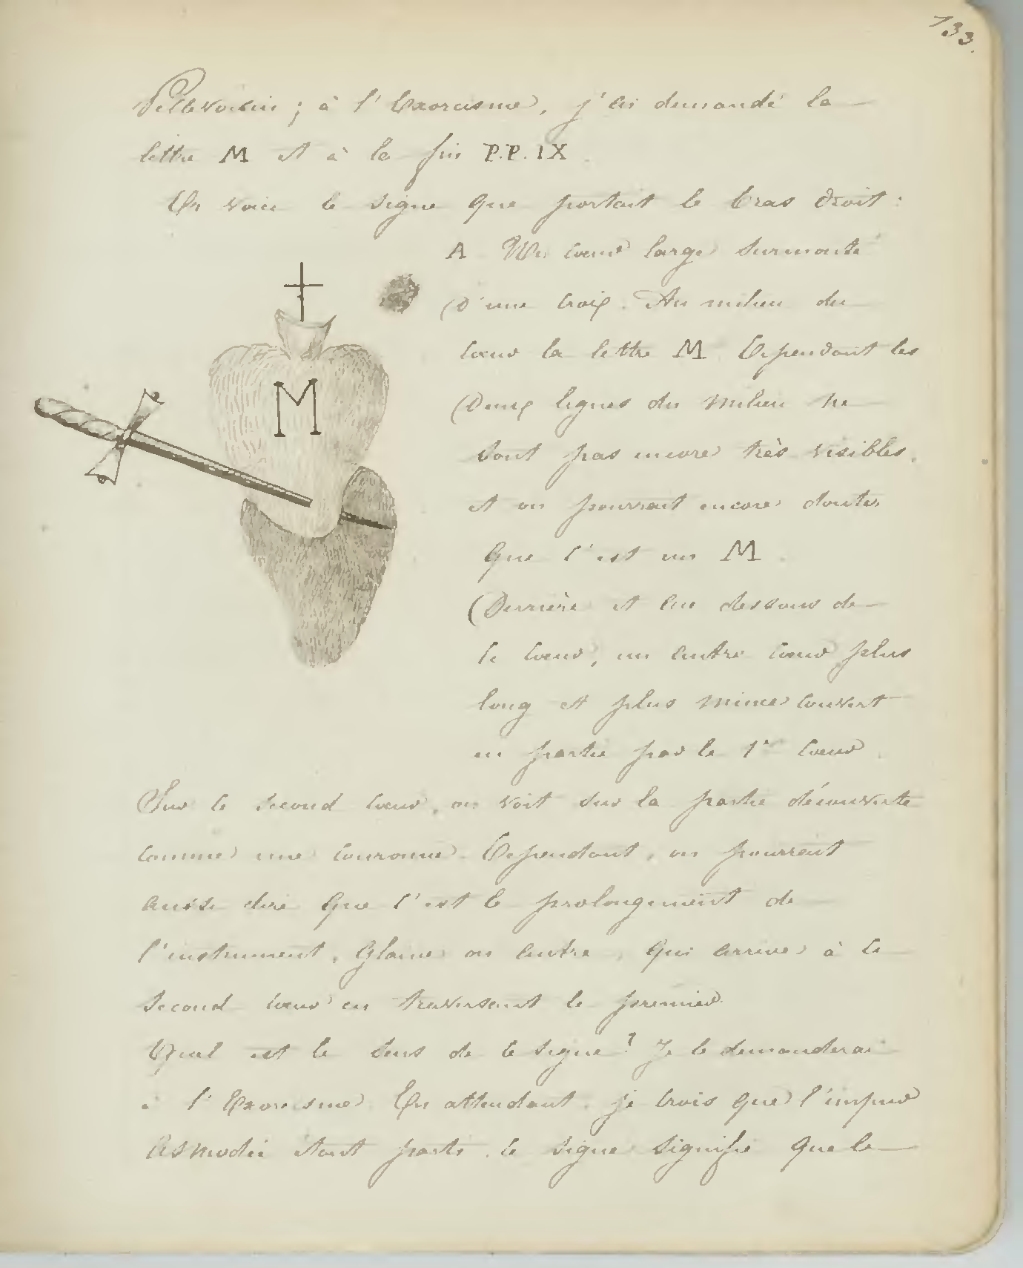 133.
Pellevoisin ; à l'Exorcisme, j'ai demandé la
lettre M et à la fin P.P.IX.
En voici le signe que portait le bras droit :
A Un cœur large surmonté
d'une croix. Au milieu du
cœur la lettre M. Cependant les
deux lignes du milieu ne
sont pas encore très visibles,
et on pourrait encore douter
que c'est un M.
Derrière et au dessous de
ce cœur, un autre cœur plus
long et plus mince couvert
en partie par le 1er cœur.
Sur le second cœur, on voit sur la partie découverte
comme une couronne. Cependant, on pourrait
aussi dire que c'est le prolongement de
l'instrument, glaive ou autre, qui arrive à ce
second cœur en traversant le premier.
Quel est le sens de ce signe ? Je le demanderai
à l'Exorcisme. En attendant, je crois que l'impur
Asmodée étant parti, ce signe signifie que le
M